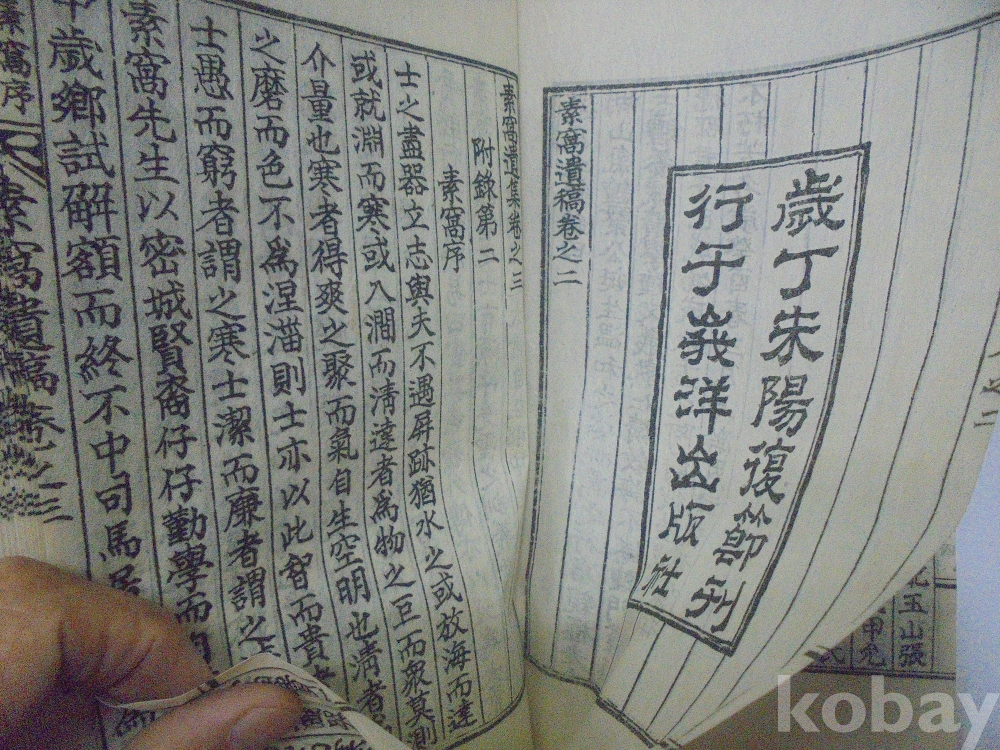 歲丁未陽復節刋
行于峩洋出版社
素窩遺稿卷之二
素窩遺集卷之三
附錄第二
素窩序
士之盡器立志與夫不遇屏跡猶水之或放海而達
或就淵而寒或入澗而淸達者爲物之巨而衆莫測
介量也寒者得爽之聚而氣自生空明也淸者
之磨而色不爲涅淄則士亦以此智而貴
士愚而窮者謂之寒士潔而廉者謂之
素窩先生以密城賢裔仔仔勤學而
中歲鄕試解額而終不中司馬
素窩序
素窩遺稿卷之三
玉山張
kobay